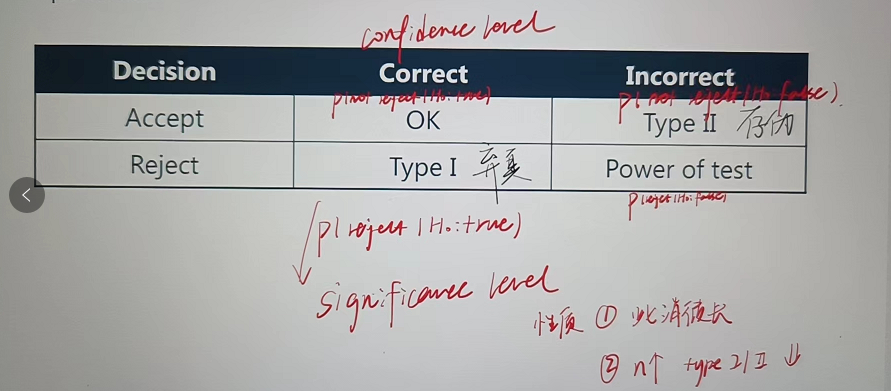 confidence level
Decision Correct Incorrect
p(not reject | H₀:true) p(not reject | H₀:false).
Accept OK Type II 存伪
Reject Type I 弃真 Power of test
p(reject | H₀:false)
p(reject | H₀:true)
significance level
性质 ① 此消彼长
② n↑ type I/II ↓